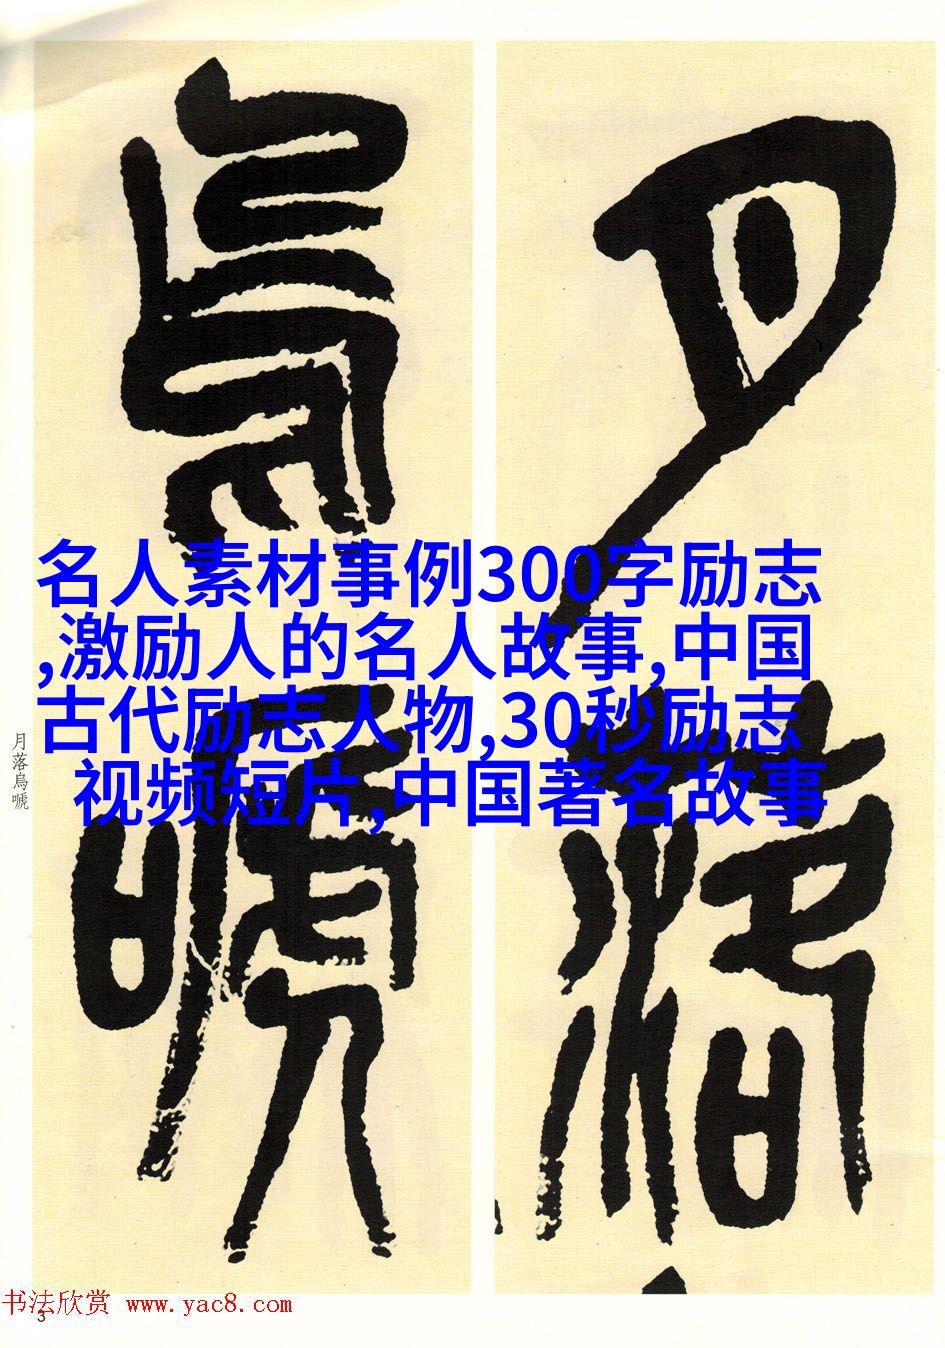 月落
烏嗁
名人素材事例300字励志
,激励人的名人故事,中国
古代励志人物,30秒励志
视频短片,中国著名故事
月落烏嗁
书法欣赏 www.yac8.com
3